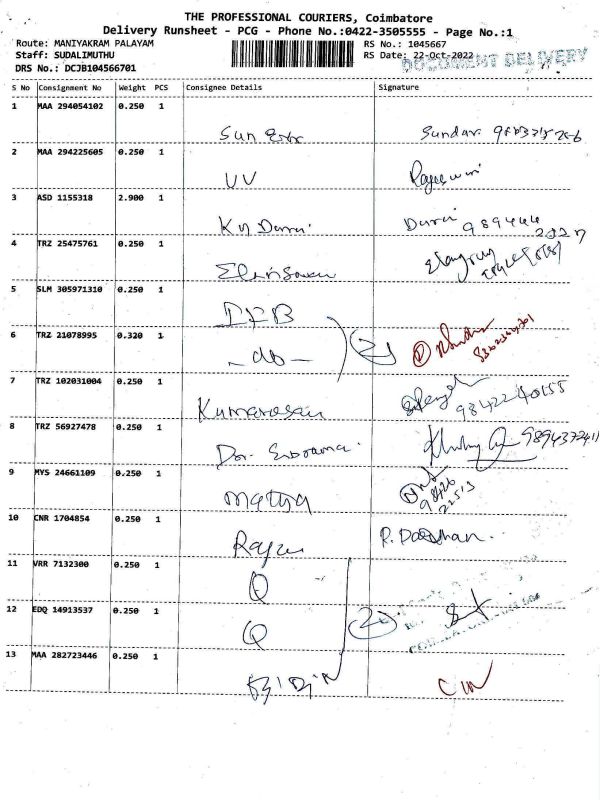 THE PROFESSIONAL COURIERS, Coimbatore
Delivery Runsheet - PCG - Phone No.:0422-3505555 - Page No.:1
Route: MANIYAKRAM PALAYAM RS No.: 1045667
Staff: SUDALIMUTHU RS Date: 22-Oct-2022
DOCUMENT DELIVERY
DRS No.: DCJB104566701
S No Consignment No Weight PCS Consignee Details Signature
1 MAA 294054102 0.250 1
Sun Sundar
2 MAA 294225605 0.250 1
UV Rajeswari
3 ASD 1155318 2.900 1
KN Durai Durai 989444
4 TRZ 25475761 0.250 1
5 SLM 305971310 0.250 1
IFB
6 TRZ 21078995 0.320 1
- do - (2)
7 TRZ 102031004 0.250 1
Kumaresan 9842240155
8 TRZ 56927478 0.250 1
Dr. 9894372411
9 MYS 24661109 0.250 1
22513
10 CNR 1704854 0.250 1
R. Darshan.
11 VRR 7132300 0.250 1
Q
12 EDQ 14913537 0.250 1
Q (2)
13 MAA 282723446 0.250 1